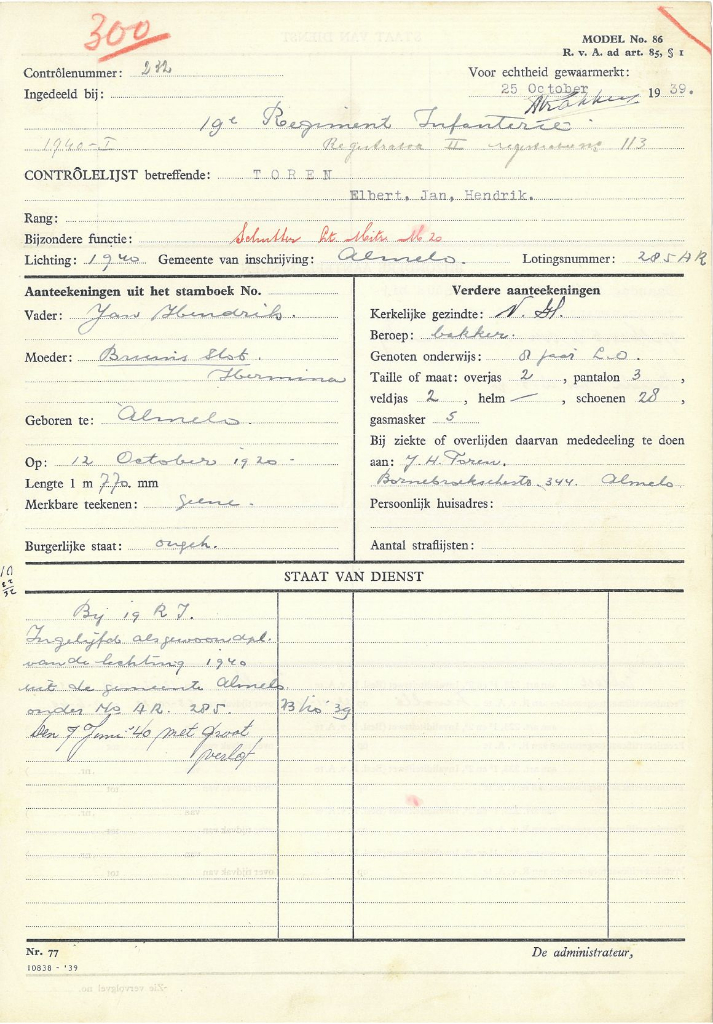 300
MODEL No. 86
R. v. A. ad art. 85, § 1
Contrôlenummer: 232
Voor echtheid gewaarmerkt:
Ingedeeld bij:
25 October 1939.
19e Regiment Infanterie.
1940-I
II 113
CONTRÔLELIJST betreffende: TOREN
Elbert, Jan, Hendrik.
Rang:
Bijzondere functie: Schutter Lt. Mitr. M 20
Lichting: 1940 Gemeente van inschrijving: Almelo. Lotingsnummer: 285 AR
Aanteekeningen uit het stamboek No.
Vader: Jan Hendrik.
Moeder: Bruins Slot.
Hermina
Geboren te: Almelo.
Op: 12 October 1920.
Lengte 1 m 770. mm
Merkbare teekenen: geene.
Burgerlijke staat: ongeh.
Verdere aanteekeningen
Kerkelijke gezindte: N. H.
Beroep: bakker.
Genoten onderwijs: 8 jaar L.O.
Taille of maat: overjas 2, pantalon 3,
veldjas 2, helm —, schoenen 28,
gasmasker 5
Bij ziekte of overlijden daarvan mededeeling te doen
aan: J. H. Toren.
Bornebroekschestr. 344. Almelo
Persoonlijk huisadres:
Aantal straflijsten:
STAAT VAN DIENST
Bij 19 R I.
Ingelijfd als gewoon dpl.
van de lichting 1940
uit de gemeente Almelo
onder No AR. 285.
Den 7 Juni '40 met groot
verlof
Nr. 77
De administrateur,
10838 - '39